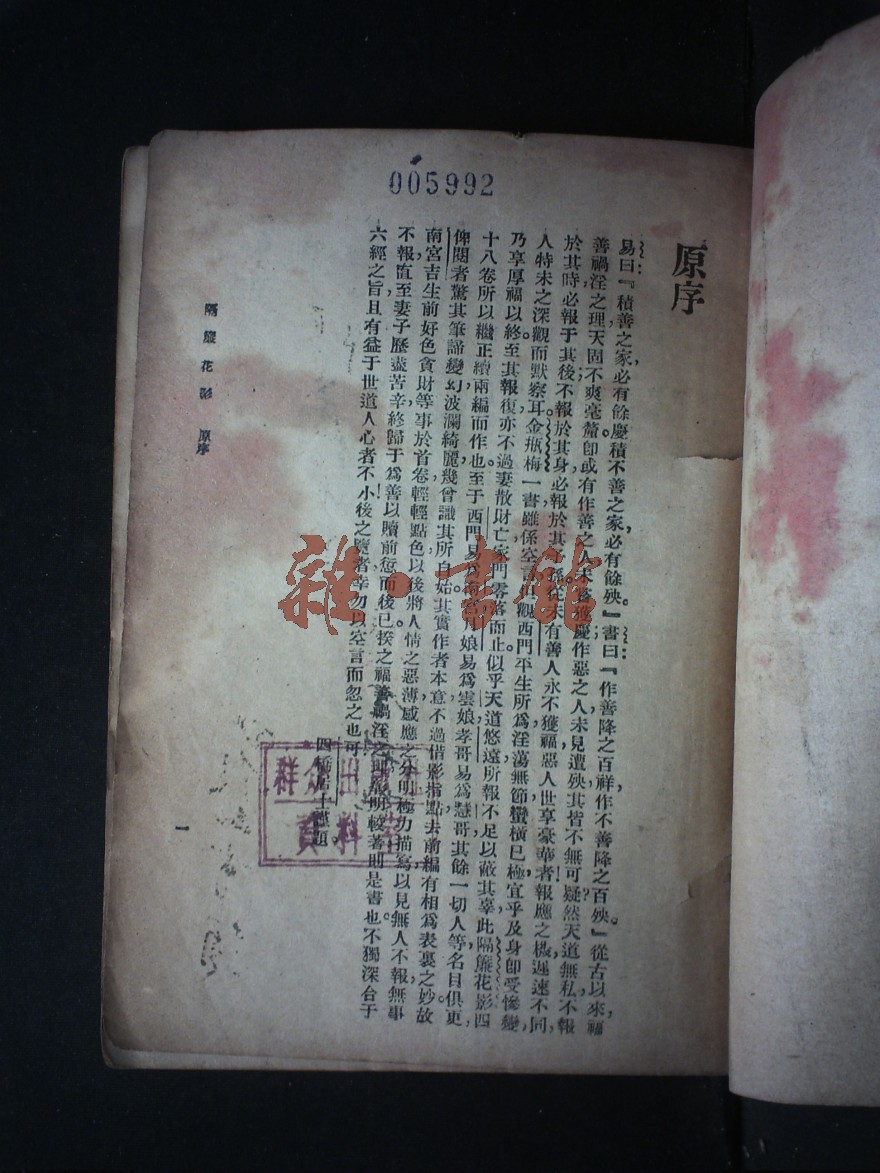 005992
原序
易曰『積善之家必有餘慶積不善之家必有餘殃。』書曰『作善降之百祥作不善降之百殃。』從古以來福
善禍淫之理天固不爽毫釐卽或有作善之人未蒙獲慶作惡之人未見遭殃其皆不無可疑然天道無私不報
於其時必報于其後不報於其身必報於其子孫從未有善人永不獲福惡人世享豪華者報應之機遲速不同
人特未之深觀而默察耳金瓶梅一書雖係空言但觀西門平生所爲淫蕩無節蠻橫已極宜乎及身卽受慘變
乃享厚福以終至其報復亦不過妻散財亡家門零落而止似乎天道悠遠所報不足以蔽其辜此隔簾花影四
十八卷所以繼正續兩編而作也至于西門易爲南宮月娘易爲雲娘孝哥易爲慧哥其餘一切人等名目俱更
俾閱者驚其筆諦變幻波瀾綺麗幾曾識其所自始其實作者本意不過借影指點去前編有相爲表裏之妙故
南宮吉生前好色貪財等事於首卷輕輕點色以後將人情之惡薄感應之分明極力描寫以見無人不報無事
不報直至妻子歷盡苦辛終歸于爲善以贖前愆而後已揆之福善禍淫之理彰明較著則是書也不獨深合于
六經之旨且有益于世道人心者不小後之覽者幸勿以空言而忽之也可
四橋居士謹題。
隔簾花影 原序
一
群众出
資料室
雜·書館